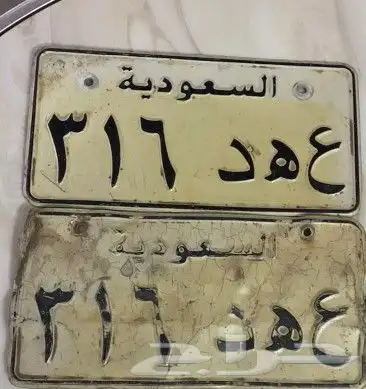 السعودية
٣١٦ ع ه د
السعودية
٣١٦ ع ه د
حراج